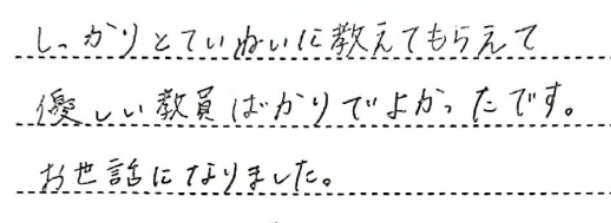 しっかりとていねいに教えてもらえて
優しい教員ばかりでよかったです。
お世話になりました。